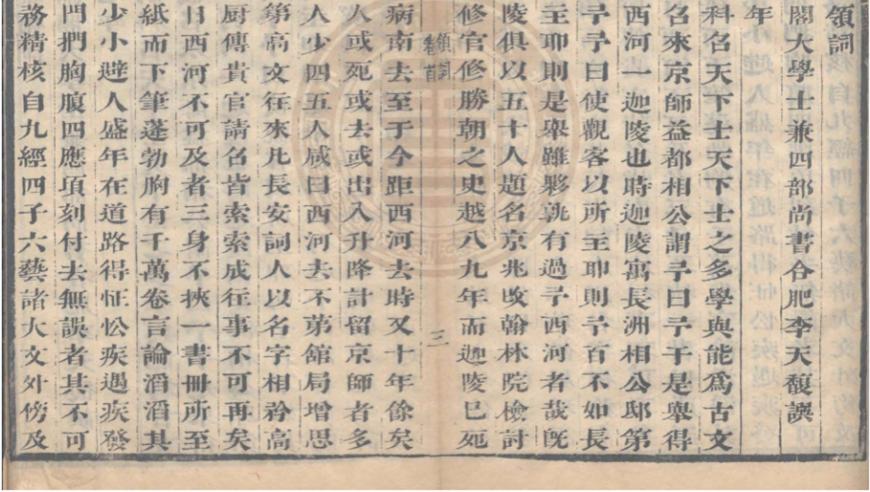 領詞
閣大學士兼四部尚書合肥李天馥譔
年
科名天下士天下士之多學與能爲古文
名來京師益都相公謂予曰予于是舉得
西河一迦陵也時迦陵寓長洲相公邸第
予予曰使觀客以所主聊則予百不如長
主聊則是舉雖夥孰有過予西河者哉旣
陵俱以五十人題名京兆改翰林院檢討
修官修勝朝之史越八九年而迦陵已死
領詞
卷首
三
病南去至于今距西河去時又十年餘矣
人或死或去或出入升降計留京師者多
人少四五人咸曰西河去不苐館局增思
第高文往來凡長安詞人以名字相矜高
廚傳貴官請名皆索索成往事不可再矣
曰西河不可及者三身不挾一書冊所至
紙而下筆蓬勃胸有千萬卷言論滔滔其
少小避人盛年在道路得怔忪疾遇疾發
門捫胸腹四應頃刻付去無誤者其不可
務精核自九經四子六藝諸大文外傍及